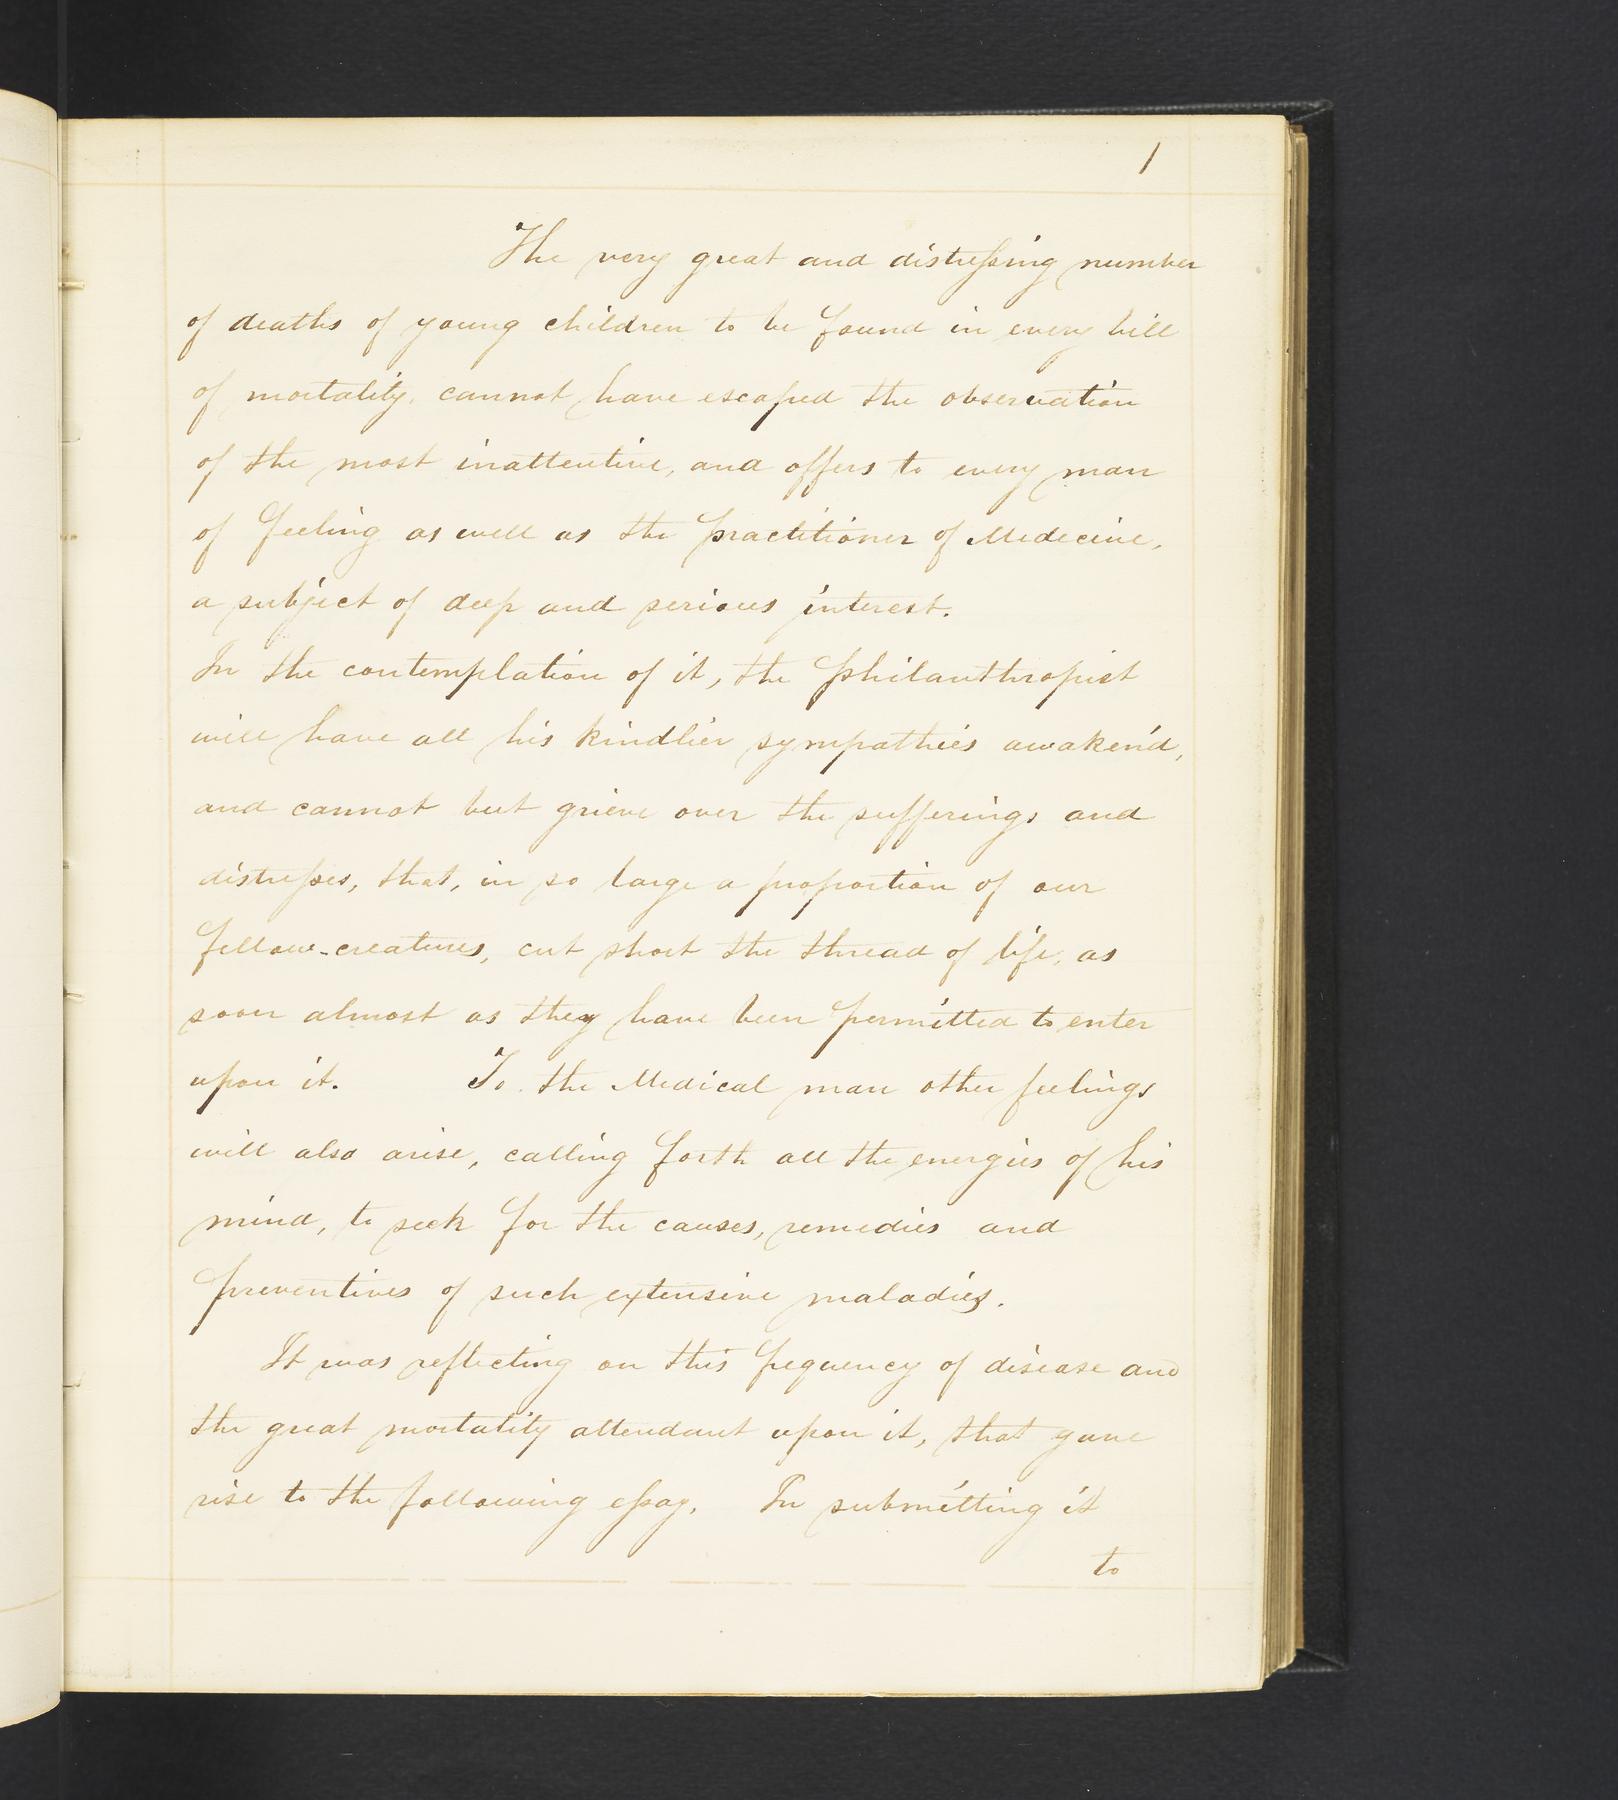 1
The very great and distreſsing number
of deaths of young children to be found in every bill
of mortality, cannot have escaped the observation
of the most inattentive, and offers to every man
of feeling as well as the practitioner of Medecine,
a subject of deep and serious interest.
In the contemplation of it, the philanthropist
will have all his kindlier sympathies awaken'd,
and cannot but grieve over the sufferings and
distreſses, that, in so large a proportion of our
fellow-creatures, cut short the thread of life, as
soon almost as they have been permitted to enter
upon it. To the Medical man other feelings
will also arise, calling forth all the energies of his
mind, to seek for the causes, remedies and
preventives of such extensive maladies.
It was reflecting on this frequency of disease and
the great mortality attendant upon it, that gave
rise to the following eſsay. In submitting it
to